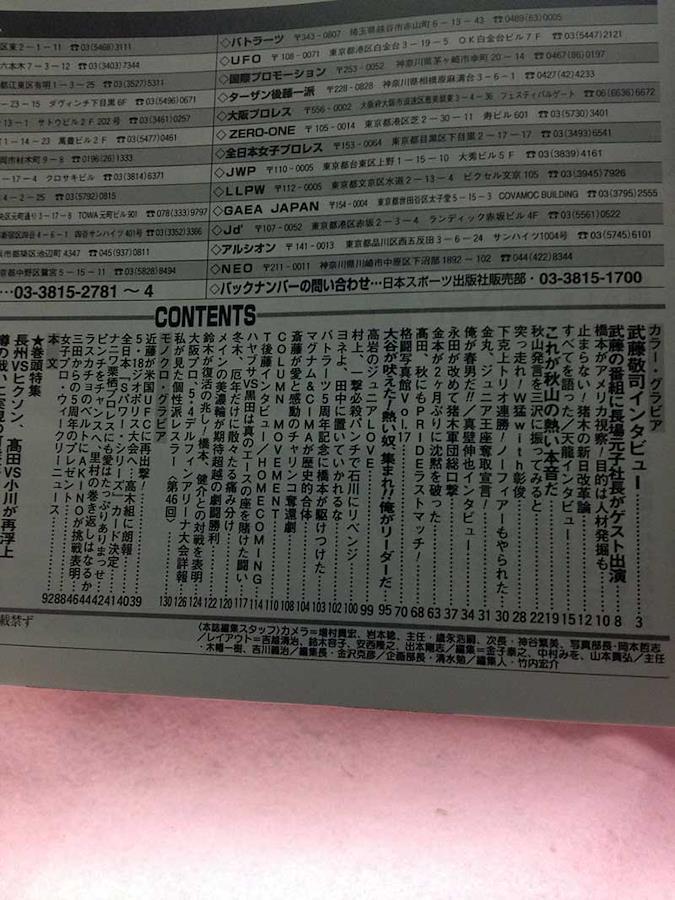 バトラーツ 〒343-0807 埼玉県越谷市赤山町6-13-43 ☎0489(63)0005
UFO 〒108-0071 東京都港区白金台3-19-5 OK白金台ビル7F ☎03(5447)2121
国際プロモーション 〒253-0052 神奈川県茅ヶ崎市幸町20-14 ☎0467(86)0197
ターザン後藤一派 〒228-0828 神奈川県相模原麻溝台3-6-1 ☎0427(42)4233
大阪プロレス 〒556-0002 大阪府大阪市浪速区恵美須東3-4-36 フェスティバルゲート ☎06(6636)6672
ZERO-ONE 〒105-0014 東京都港区芝2-30-11 寿ビル601 ☎03(5730)3401
全日本女子プロレス 〒153-0064 東京都目黒区下目黒2-17-17 ☎03(3493)6541
JWP 〒110-0005 東京都台東区上野1-15-10 大秀ビル5F ☎03(3839)4161
LLPW 〒112-0005 東京都文京区水道2-13-4 ピクセル文京105 ☎03(3945)7926
GAEA JAPAN 〒154-0004 東京都世田谷区太子堂5-15-3 COVAMOC BUILDING ☎03(3795)2555
Jd' 〒107-0052 東京都港区赤坂2-3-4 ランディック赤坂ビル4F ☎03(5561)0522
アルシオン 〒141-0013 東京都品川区西五反田3-6-24 サンハイツ1004号 ☎03(5745)6101
NEO 〒211-0011 神奈川県川崎市中原区下沼部1892-102 ☎044(422)8344
バックナンバーの問い合わせ…日本スポーツ出版社販売部・03-3815-1700
区東2-1-11 ☎03(5468)3111
六本木7-3-12 ☎03(3403)7344
都江東区有明1-3-25 ☎03(3527)5311
-23-15 ダヴィンチ下目黒6F ☎03(5496)0671
-13-1 サトウビル2F 202号 ☎03(3461)0257
1-14-23 萬豊ビル2F ☎03(5477)0461
岡市材木町9-8 ☎0196(26)1333
-17-4 クロサキビル ☎03(3814)6371
☎03(5792)0815
央区元町通り3-17-8 TOWA元町ビル901 ☎078(333)9797
新宿区四谷4-6-1 四谷サンハイツ401号 ☎03(3352)3366
浜市都筑区池辺町4347 ☎045(937)0811
東京都中野区鷺宮5-15-11 ☎03(5828)8494
…03-3815-2781〜4
CONTENTS
カラー・グラビア
武藤敬司インタビュー 3
武藤の番組に長場元子社長がゲスト出演 8
橋本がアメリカ視察！目的は人材発掘も 10
止まらない！猪木の新日改革論 12
すべてを語った／天龍インタビュー 15
これが秋山の熱い本音だ 19
秋山発言を三沢に振ってみると 22
突っ走れ！W猛with彰俊 28
下克上トリオ連勝！ノーフィアーもやられた 30
金丸、ジュニア王座奪取宣言！ 31
俺が春男だ!!／真壁伸也インタビュー 34
永田が改めて猪木軍団総口撃 37
金本が2ヶ月ぶりに沈黙を破った 63
髙田、秋にもPRIDEラストマッチ！ 68
格闘写真館Vol.17 70
大谷が吠えた！熱い奴、集まれ!!俺がリーダーだ 95
高岩のジュニアLOVE 99
村上、一撃必殺パンチで石川にリベンジ 100
ヨネよ、田中に置いていかれるな 102
バトラーツ5周年記念に橋本が駆けつけた 103
マグナム&CIMAが歴史的合体 104
斎藤が愛と感動のチャリンコ奪還劇 108
COLUMN MOVEMENT 110
T後藤インタビュー／HOMECOMING 114
ハヤブサVS黒田は真のエースの座を賭けた闘い 117
冬木、厄年だけに散々たる痛み分け 120
メインの美濃輪が期待超越の劇闘勝利 122
鈴木が復活の兆し！橋本、健介との対戦を表明 124
大阪プロ、5・4デルフィンアリーナ大会詳報 126
私が見た個性派レスラー〈第46回〉 130
モノクロ・グラビア
近藤が米国UFCに再出撃！ 39
5・18ジオポリス大会へ…高木組に朗報 40
全日本「Sパワー・シリーズ」カード決定 41
ナニワ栗柄プロレスにも愛はたっぷりありまっせ 42
ピンチをチャンスへ、里村の巻き返しはなるか 44
ラスカチョのベルトにAKINOが挑戦表明 46
三田からの5周年のプレゼント 88
女子プロ・ウィークリーニュース 92
本文
★巻頭特集
長州VSヒクソン、髙田VS小川が再浮上
載禁ず
〈本誌編集スタッフ〉カメラ＝増村貴宏、岩本総、主任・織永浩嗣、次長・神谷繁美、写真部長・岡本哲志
／レイアウト＝吉越清治、鈴木容子、安西隆之、出本剛志／編集＝金子泰之、中村みを、山本貴弘／主任
・木幡一樹、吉川義治／編集長・金沢克彦／企画部長・清水勉／編集人・竹内宏介